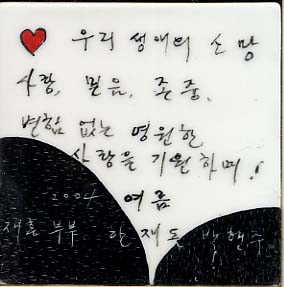 우리 생애의 소망
사랑, 믿음, 존중,
변함 없는 영원한
사랑을 기원하며!
2004 여름
재혼 부부 한재돈 박현수